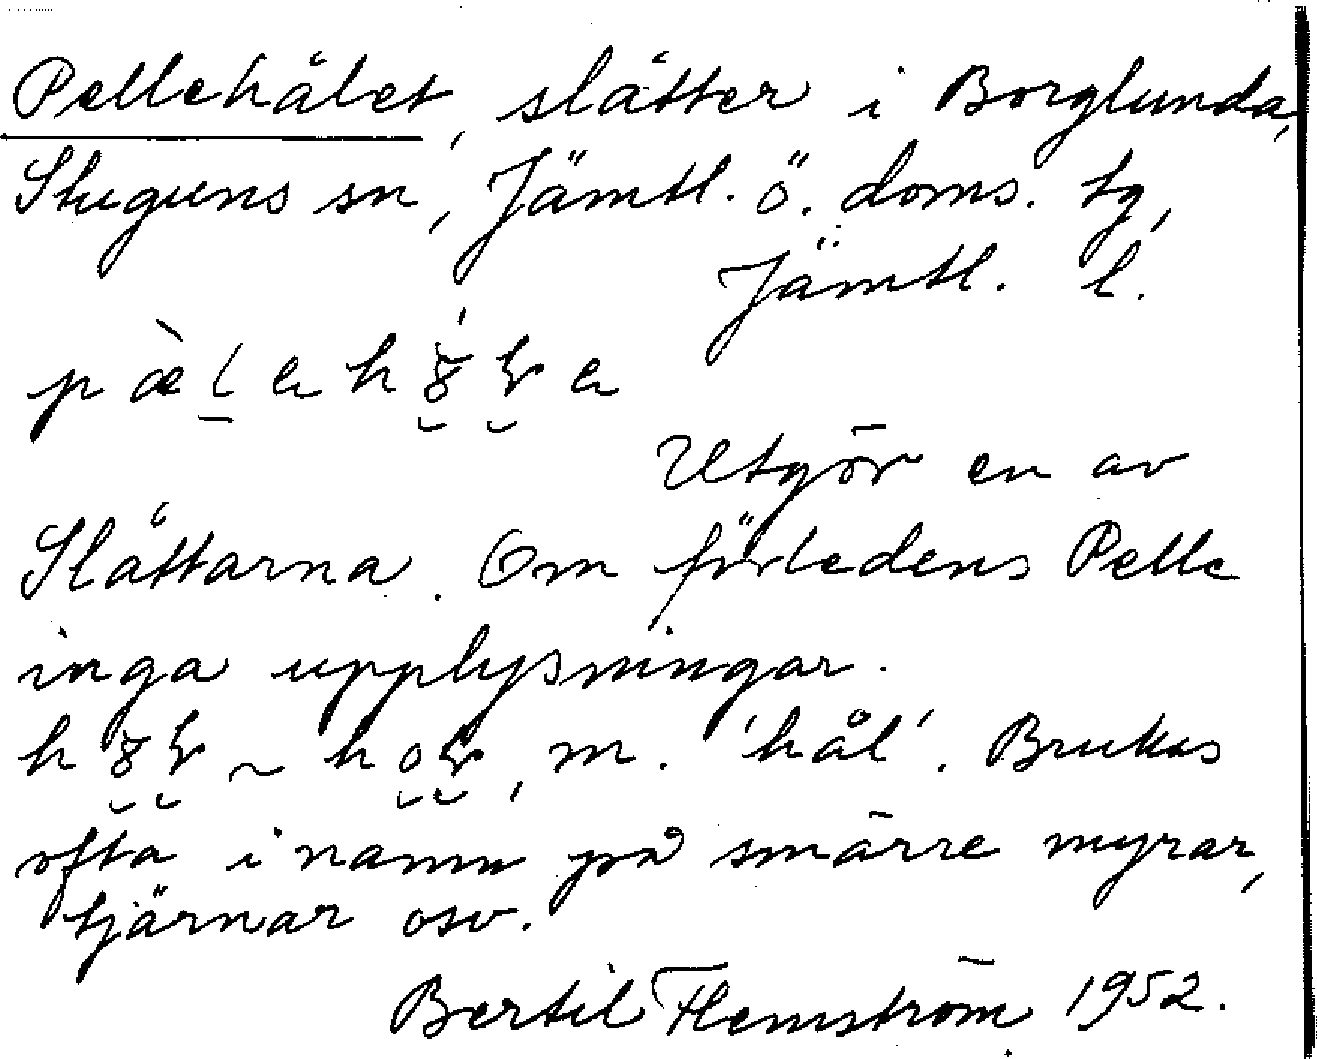 Pellehålet, slåtter i Borglunda,
Stuguns sn, Jämtl. ö. doms. tg,
Jämtl. l.
Utgör en av
Slåttarna. Om förledens Pelle
inga upplysningar.
m. 'hål'. Brukas
ofta i namn på smärre myrar,
tjärnar osv.
Bertil Flemström 1952.